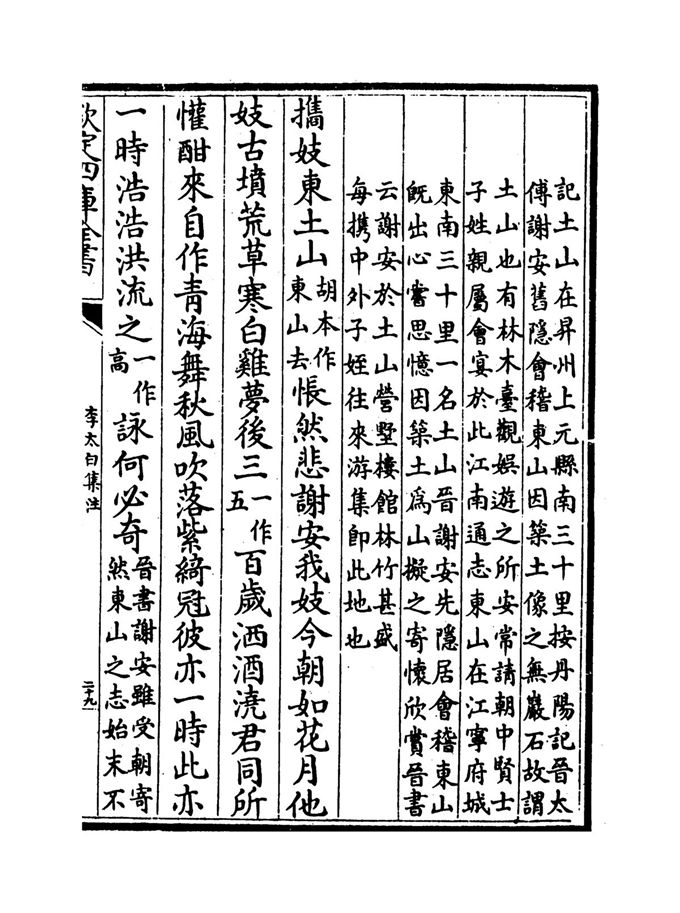 記土山在昇州上元縣南三十里按丹陽記晉太
傅謝安舊隱會稽東山因築土像之無巖石故謂
土山也有林木臺觀娯遊之所安常請朝中賢士
子姓親屬會宴於此江南通志東山在江寧府城
東南三十里一名土山晉謝安先隱居會稽東山
旣出心嘗思憶因築土爲山擬之寄懷欣賞晉書
云謝安於土山營墅樓館林竹甚盛
每携中外子姪往來游集卽此地也
攜妓東土山胡本作東山去悵然悲謝安我妓今朝如花月他
妓古墳荒草寒白雞夢後三一作五百歲洒酒澆君同所
懽酣來自作青海舞秋風吹落紫綺冠彼亦一時此亦
一時浩浩洪流之一作高詠何必奇晉書謝安雖受朝寄
然東山之志始末不
欽定四庫全書
李太白集注
二十九